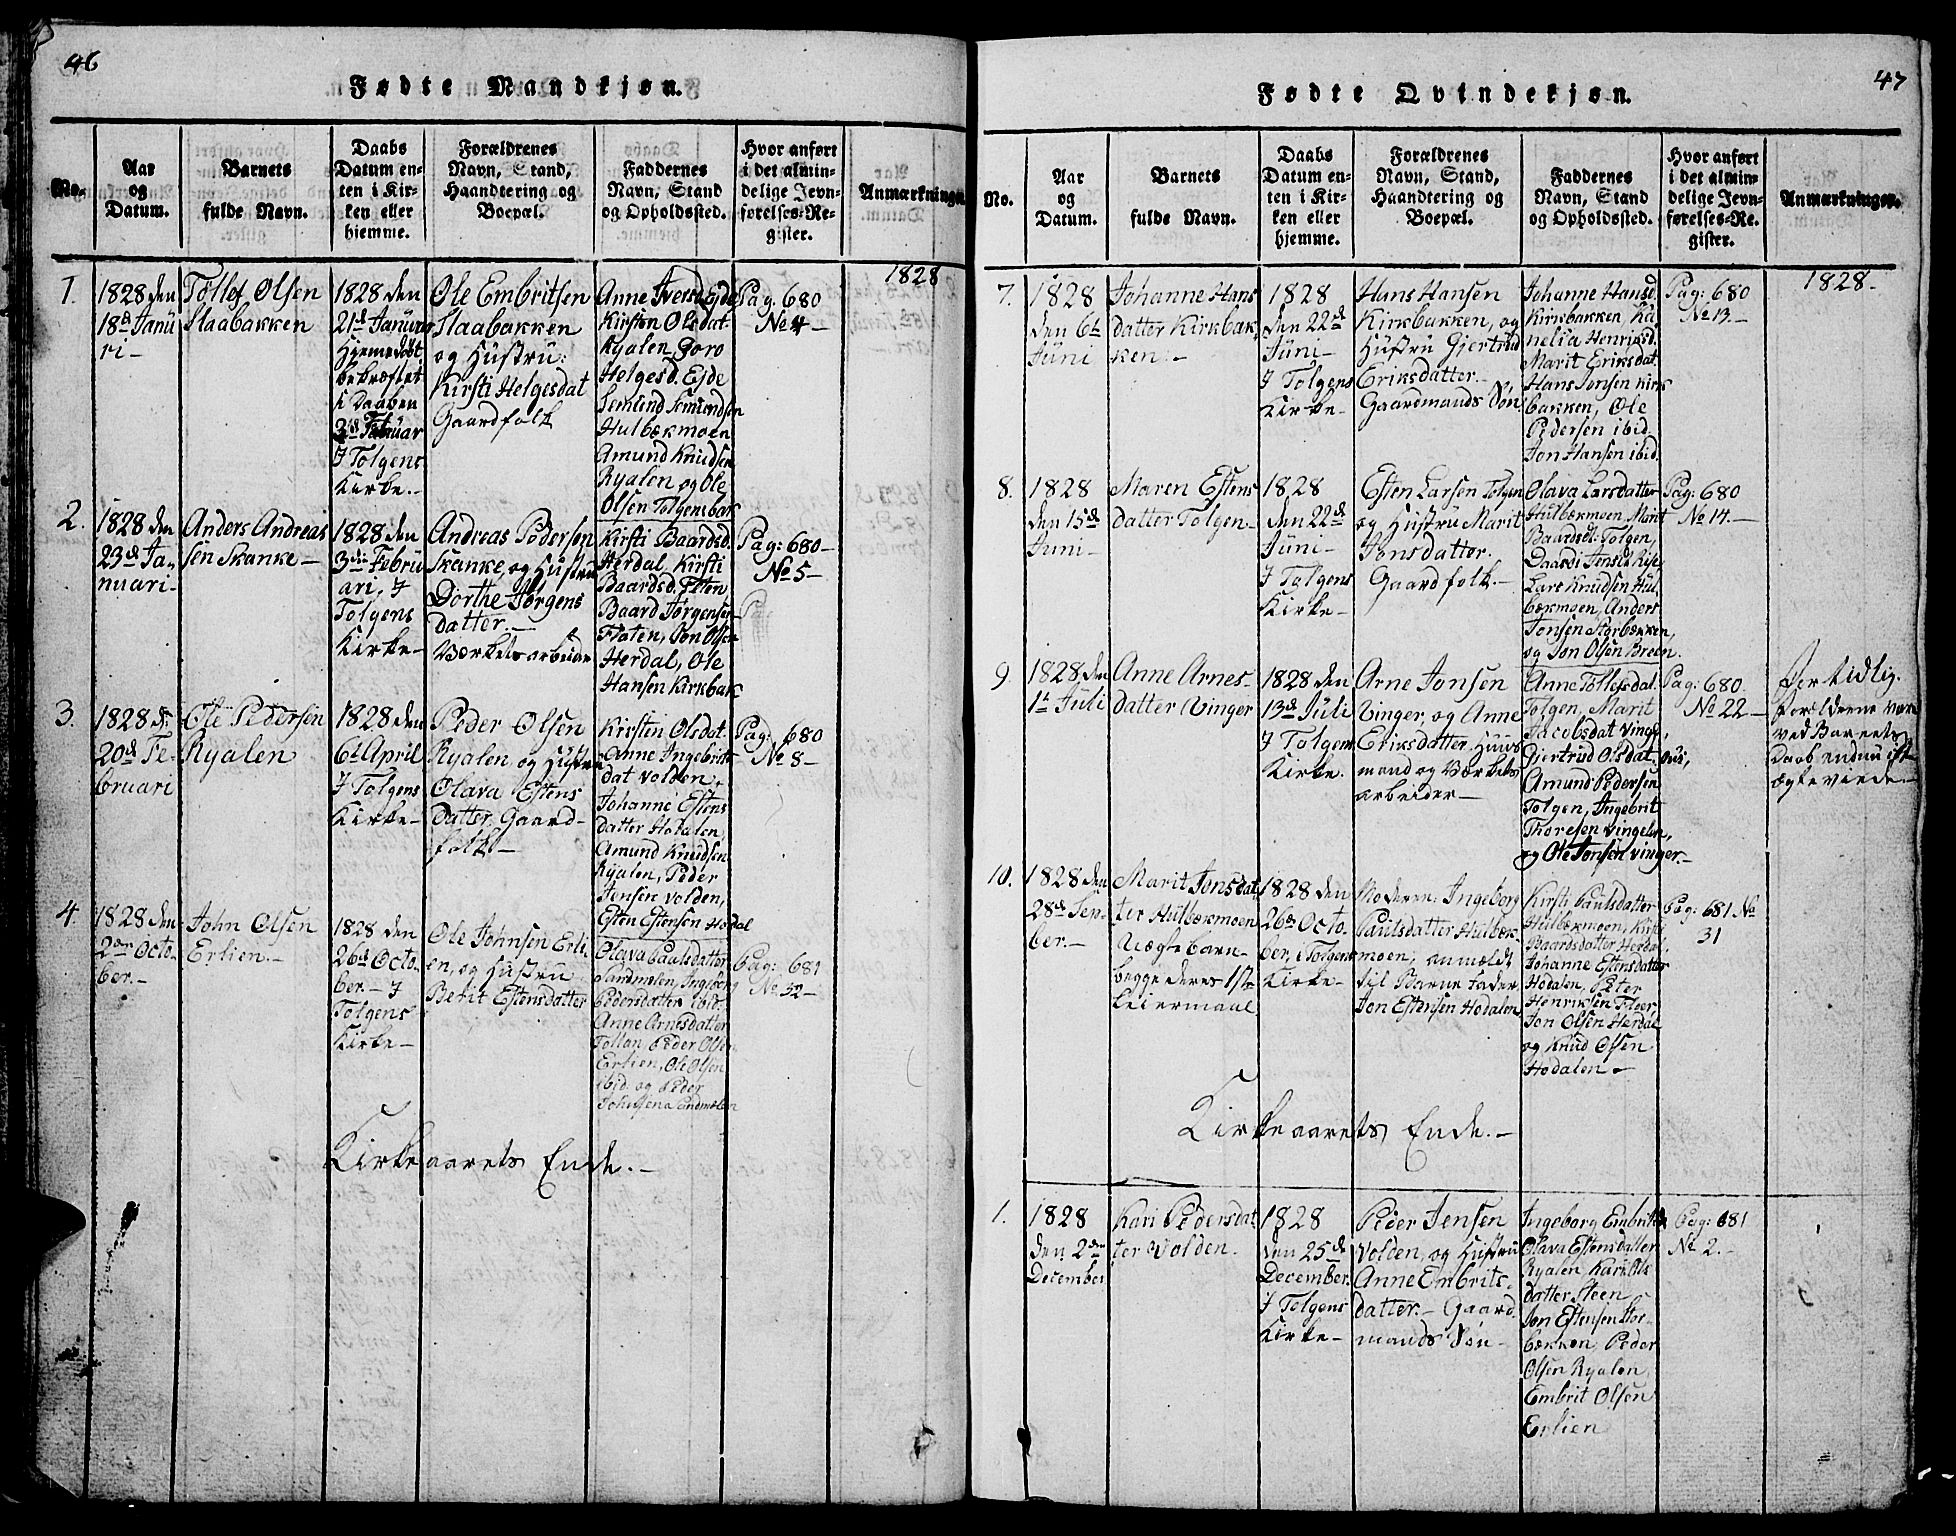 46
Fødte Mandkjøn.
No.
Aar
og
Datum.
Barnets
fulde Navn.
Daabs
Datum en-
ten i Kir-
ken eller
hjemme.
Forældrenes
Navn, Stand,
Haandtering og
Boepæl.
Faddernes
Navn, Stand
og Opholdssted.
Hvor anført
i det almin-
delige Jevn-
førelses-Re-
gister.
Anmærkninger.
1828
1.
1828 den
18d Janu
ri-
Tollef Olsen
Slaabakken
1828 den
21d Januar
Hjemedøbt
bekræftet
i Daaben
3die Februar
I Tolgens
Kirke.-
Ole Embritsen
Slaabakken
og Hustru:
Kirsti Helgesdat
Gaardfolk
Anne Iversd. Ejde
Kirsten Olsdat.
Ryalen, Goro
Helgesd. Ejde
Semund Semundsen
Hulbækmoen
Amund Knudsen
Ryalen og Ole
Olsen Tolgensbak
Pag. 680
No 4-
2.
1828 den
23d Ja-
nuari-
Anders Andreas
sen Skanke-
1828 den
3die Febru
ari, I
Tolgens
Kirke-
Andreas Pedersen
Skanke, og Hustru
Dorthe Jørgens
datter.-
Værkets arbeider
Kirsti Baardsd.
Herdal, Kirsti
Baardsd. Eten
Baard Jørgensen
Floten, Jon Olsen
Herdal, Ole
Hansen Kirkbak
Pag: 680-
No 5-
3.
1828 d:
20d Fe-
bruari
Ole Pedersen
Ryalen
1828 den
6t April
I Tolgens
Kirke-
Peder Olsen
Ryalen og Hustru
Olava Estens
datter, Gaard-
folk-
Kirsten Olsdat.
Anne Ingebrits
dat Volden,
Johanne Estens
datter Hodalen,
Amund Knudsen
Ryalen, Peder
Jensen Volden,
Esten Estensen Hodal
Pag: 680
No 8-
4
1828 den
2den Octo-
ber.-
John Olsen
Erlien.-
1828 den
26d Octo-
ber- I
Tolgens
Kirke-
Ole Johnsen Erli
en, og Hustru
Berit Estensdatter
Olava Paulsdatter
Sandmælen, Ingeborg
Pedersdatter ibid.
Anne Arnesdatter
Tollan Peder Olsen
Erlien, Ole Olsen
ibid. og Peder
Johnsen Sandmælen
Pag: 681
No 32-
Kirkeaarets Ende.-
47
Fødte Qvindekjøn.
No.
Aar
og
Datum.
Barnets
fulde Navn.
Daabs
Datum en-
ten i Kir-
ken eller
hjemme.
Forældrenes
Navn, Stand,
Haandtering og
Boepæl.
Faddernes
Navn, Stand
og Opholdssted.
Hvor anført
i det almin-
delige Jevn-
førelses-Re-
gister.
Anmærkninger.
1828-
7.
1828
den 6t
Juni
Johanne Hans
datter Kirkbak
ken.-
1828
den 22d
Juni-
I Tolgens
Kirke-
Hans Hansen
Kirkbakken, og
Hustru Gjertrud
Eriksdatter.-
Gaardmands Søn
Johanne Hansd.
Kirkbakken, Ka
nelia Henriksd.
Marit Eriksdat.
Hans Jonsen Kirk
bakken, Ole
Pedersen ibid.
Jon Hansen ibid.
Pag: 680
No 13.-
8.
1828
den 15d
Juni-
Maren Estens
datter Tolgen-
1828
den 22d
Juni-
I Tolgens
Kirke-
Esten Larsen Tolgen
og Hustru Marit
Jonsdatter.
Gaardfolk.-
Olava Larsdatter
Hulbækmoen, Marit
Baardsd: Tolgen,
Daardi Jensd. Rise
Lars Knudsen Hul
bækmoen, Anders
Jonsen Storbækken,
og Jon Olsen Breen.
Pag: 680
No 14.-
9.
1828 den
1t Juli
Anne Arnes-
datter Vinger
1828 den
13d Juli
I Tolgens
Kirke.
Arne Jonsen
Vinger, og Anne
Eriksdatter, Huus
mand og Værkets
arbeider-
Anne Tollefsdat.
Tolgen, Marit
Jacobsdat Vinge,
Gjertrud Olsdat. Hus,
Amund Pedersen
Tolgen, Ingebrit
Thoresen Vingelen,
og Ole Jonsen Vinger.-
Pag: 680.
No 22-
For tidlig.
Forældrene vare
ved Barnets
Daab endnu ikke
ægteviede.-
10.
1828 den
28d Sep-
ber.-
Marit Jonsdat
ter Hulbækmoen
Uægte barn-
begge deres 1ste
Leiermaal
1828 den
26d Octo-
ber, i Tolgens
Kirke-
Moderen: Ingeborg
Paulsdatter Hulbæk-
moen, anmeldt
til Barne fader
Jon Estensen Hodalen
Kirsti Paulsdatter
Hulbækmoen, Kirsti
Baardsdatter Herdal
Johanne Estensdatter
Hodalen, Peter
Henriksen Floer
Jon Olsen Herdal
og Knud Olsen
Hodalen-
Pag: 681 No
31
Kirkeaarets Ende.-
1.
1828
den 2den
December
Kari Pedersdat
ter Volden.
1828
den 25d
December.
I Tolgens
Kirke-
Peder Jensen
Volden, og Hustru
Anne Embrits-
datter.- Gaard
mands Søn-
Ingeborg Embritsd.
Olava Estensdatter
Ryalen, Kari Ols
datter Steen
Jon Estensen Stor-
bækken, Peder
Olsen Ryalen,
Embrit Olsen
Erlien
Pag: 681
No 2.-